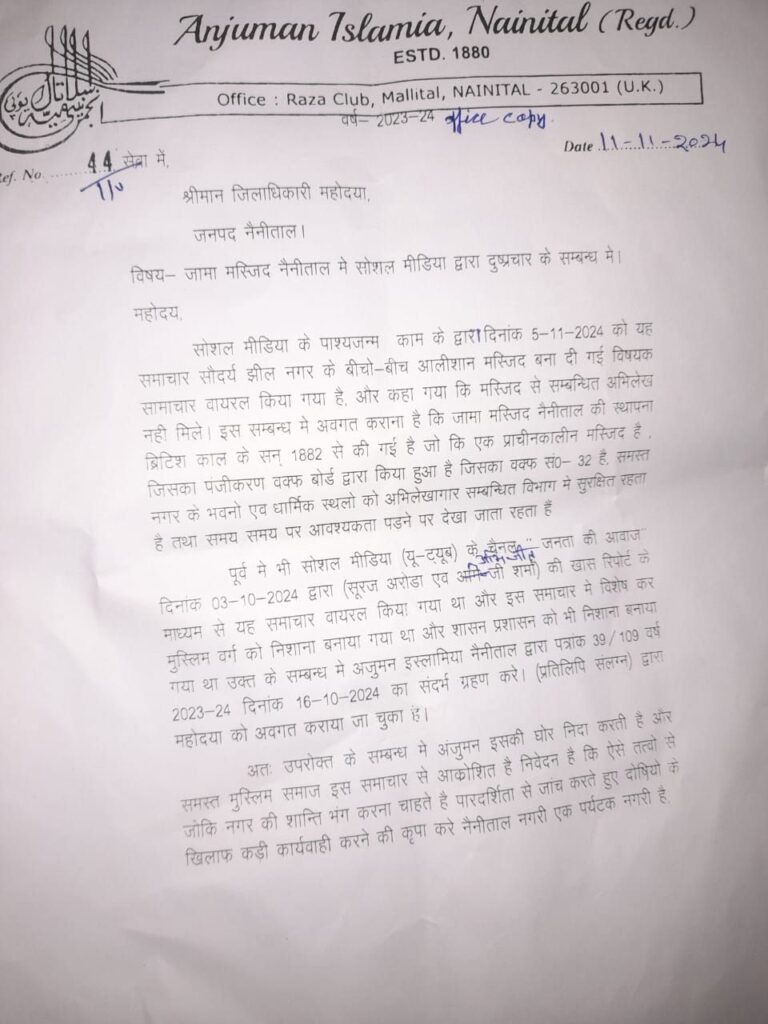 Anjuman Islamia, Nainital (Regd.)
ESTD. 1880
Office : Raza Club, Mallital, NAINITAL - 263001 (U.K.)
वर्ष– 2023–24 office copy.
Date 11-11-2024
Ref. No. 44/110 सेवा में,
श्रीमान जिलाधिकारी महोदया,
जनपद नैनीताल।
विषय– जामा मस्जिद नैनीताल मे सोशल मीडिया द्वारा दुष्प्रचार के सम्बन्ध मे।
महोदय,
सोशल मीडिया के पाश्यजन्म काम के द्वारा दिनांक 5–11–2024 को यह
समाचार सौदर्य झील नगर के बीचो–बीच आलीशान मस्जिद बना दी गई विषयक
सामाचार वायरल किया गया है, और कहा गया कि मस्जिद से सम्बन्धित अभिलेख
नही मिले। इस सम्बन्ध मे अवगत कराना है कि जामा मस्जिद नैनीताल की स्थापना
ब्रिटिश काल के सन् 1882 से की गई है जो कि एक प्राचीनकालीन मस्जिद है ,
जिसका पंजीकरण वक्फ बोर्ड द्वारा किया हुआ है जिसका वक्फ सं0– 32 है, समस्त
नगर के भवनो एव धार्मिक स्थलो को अभिलेखागार सम्बन्धित विभाग मे सुरक्षित रहता
है तथा समय समय पर आवश्यकता पडने पर देखा जाता रहता हैं
पूर्व मे भी सोशल मीडिया (यू–ट्यूब) के चैनल " जनता की आवाज"
दिनांक 03–10–2024 द्वारा (सूरज अरोडा एव अभिजीत शर्मा) की खास रिपोर्ट के
माध्यम से यह समाचार वायरल किया गया था और इस समाचार मे विशेष कर
मुस्लिम वर्ग को निशाना बनाया गया था और शासन प्रशासन को भी निशाना बनाया
गया था उक्त के सम्बन्ध मे अजुमन इस्लामिया नैनीताल द्वारा पत्रांक 39/109 वर्ष
2023–24 दिनांक 16–10–2024 का संदर्भ ग्रहण करे। (प्रतिलिपि सलग्न) द्वारा
महोदया को अवगत कराया जा चुका है।
अतः उपरोक्त के सम्बन्ध मे अंजुमन इसकी घोर निदा करती है और
समस्त मुस्लिम समाज इस समाचार से आकोशित है निवेदन है कि ऐसे तत्वो से
जोकि नगर की शान्ति भंग करना चाहते है पारदर्शिता से जांच करते हुए दोषियो के
खिलाफ कड़ी कार्यवाही करने की कृपा करे नैनीताल नगरी एक पर्यटक नगरी है,